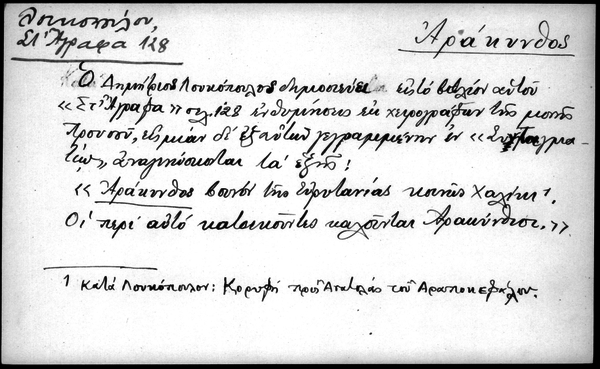 Λουκοπούλου,
Στ' Άγραφα 128
Ἀράκυνθος
Ὁ Δημήτριος Λουκόπουλος δημοσιεύει εἰς τὸ βιβλίον αὐτοῦ
«Στ' Ἄγραφα» σελ. 128 ἐνθυμήσεις ἐκ χειρογράφων τῆς μονῆς
Προυσοῦ, εἰς μίαν δὲ ἐξ αὐτῶν γεγραμμένην ἐν «Συνταγμα-
τίῳ», ἀναγινώσκεται τὰ ἑξῆς:
«Ἀράκυνθος βουνὸς τῆς Εὐρυτανίας κοινῶς Χαλίκι¹.
Οἱ περὶ αὐτὸ κατοικοῦντες καλοῦνται Ἀρακύνθιοι.»
1 Κατὰ Λουκόπουλον: Κορυφὴ πρὸς Ἀνατολὰς τοῦ Ἀραποκεφάλου.